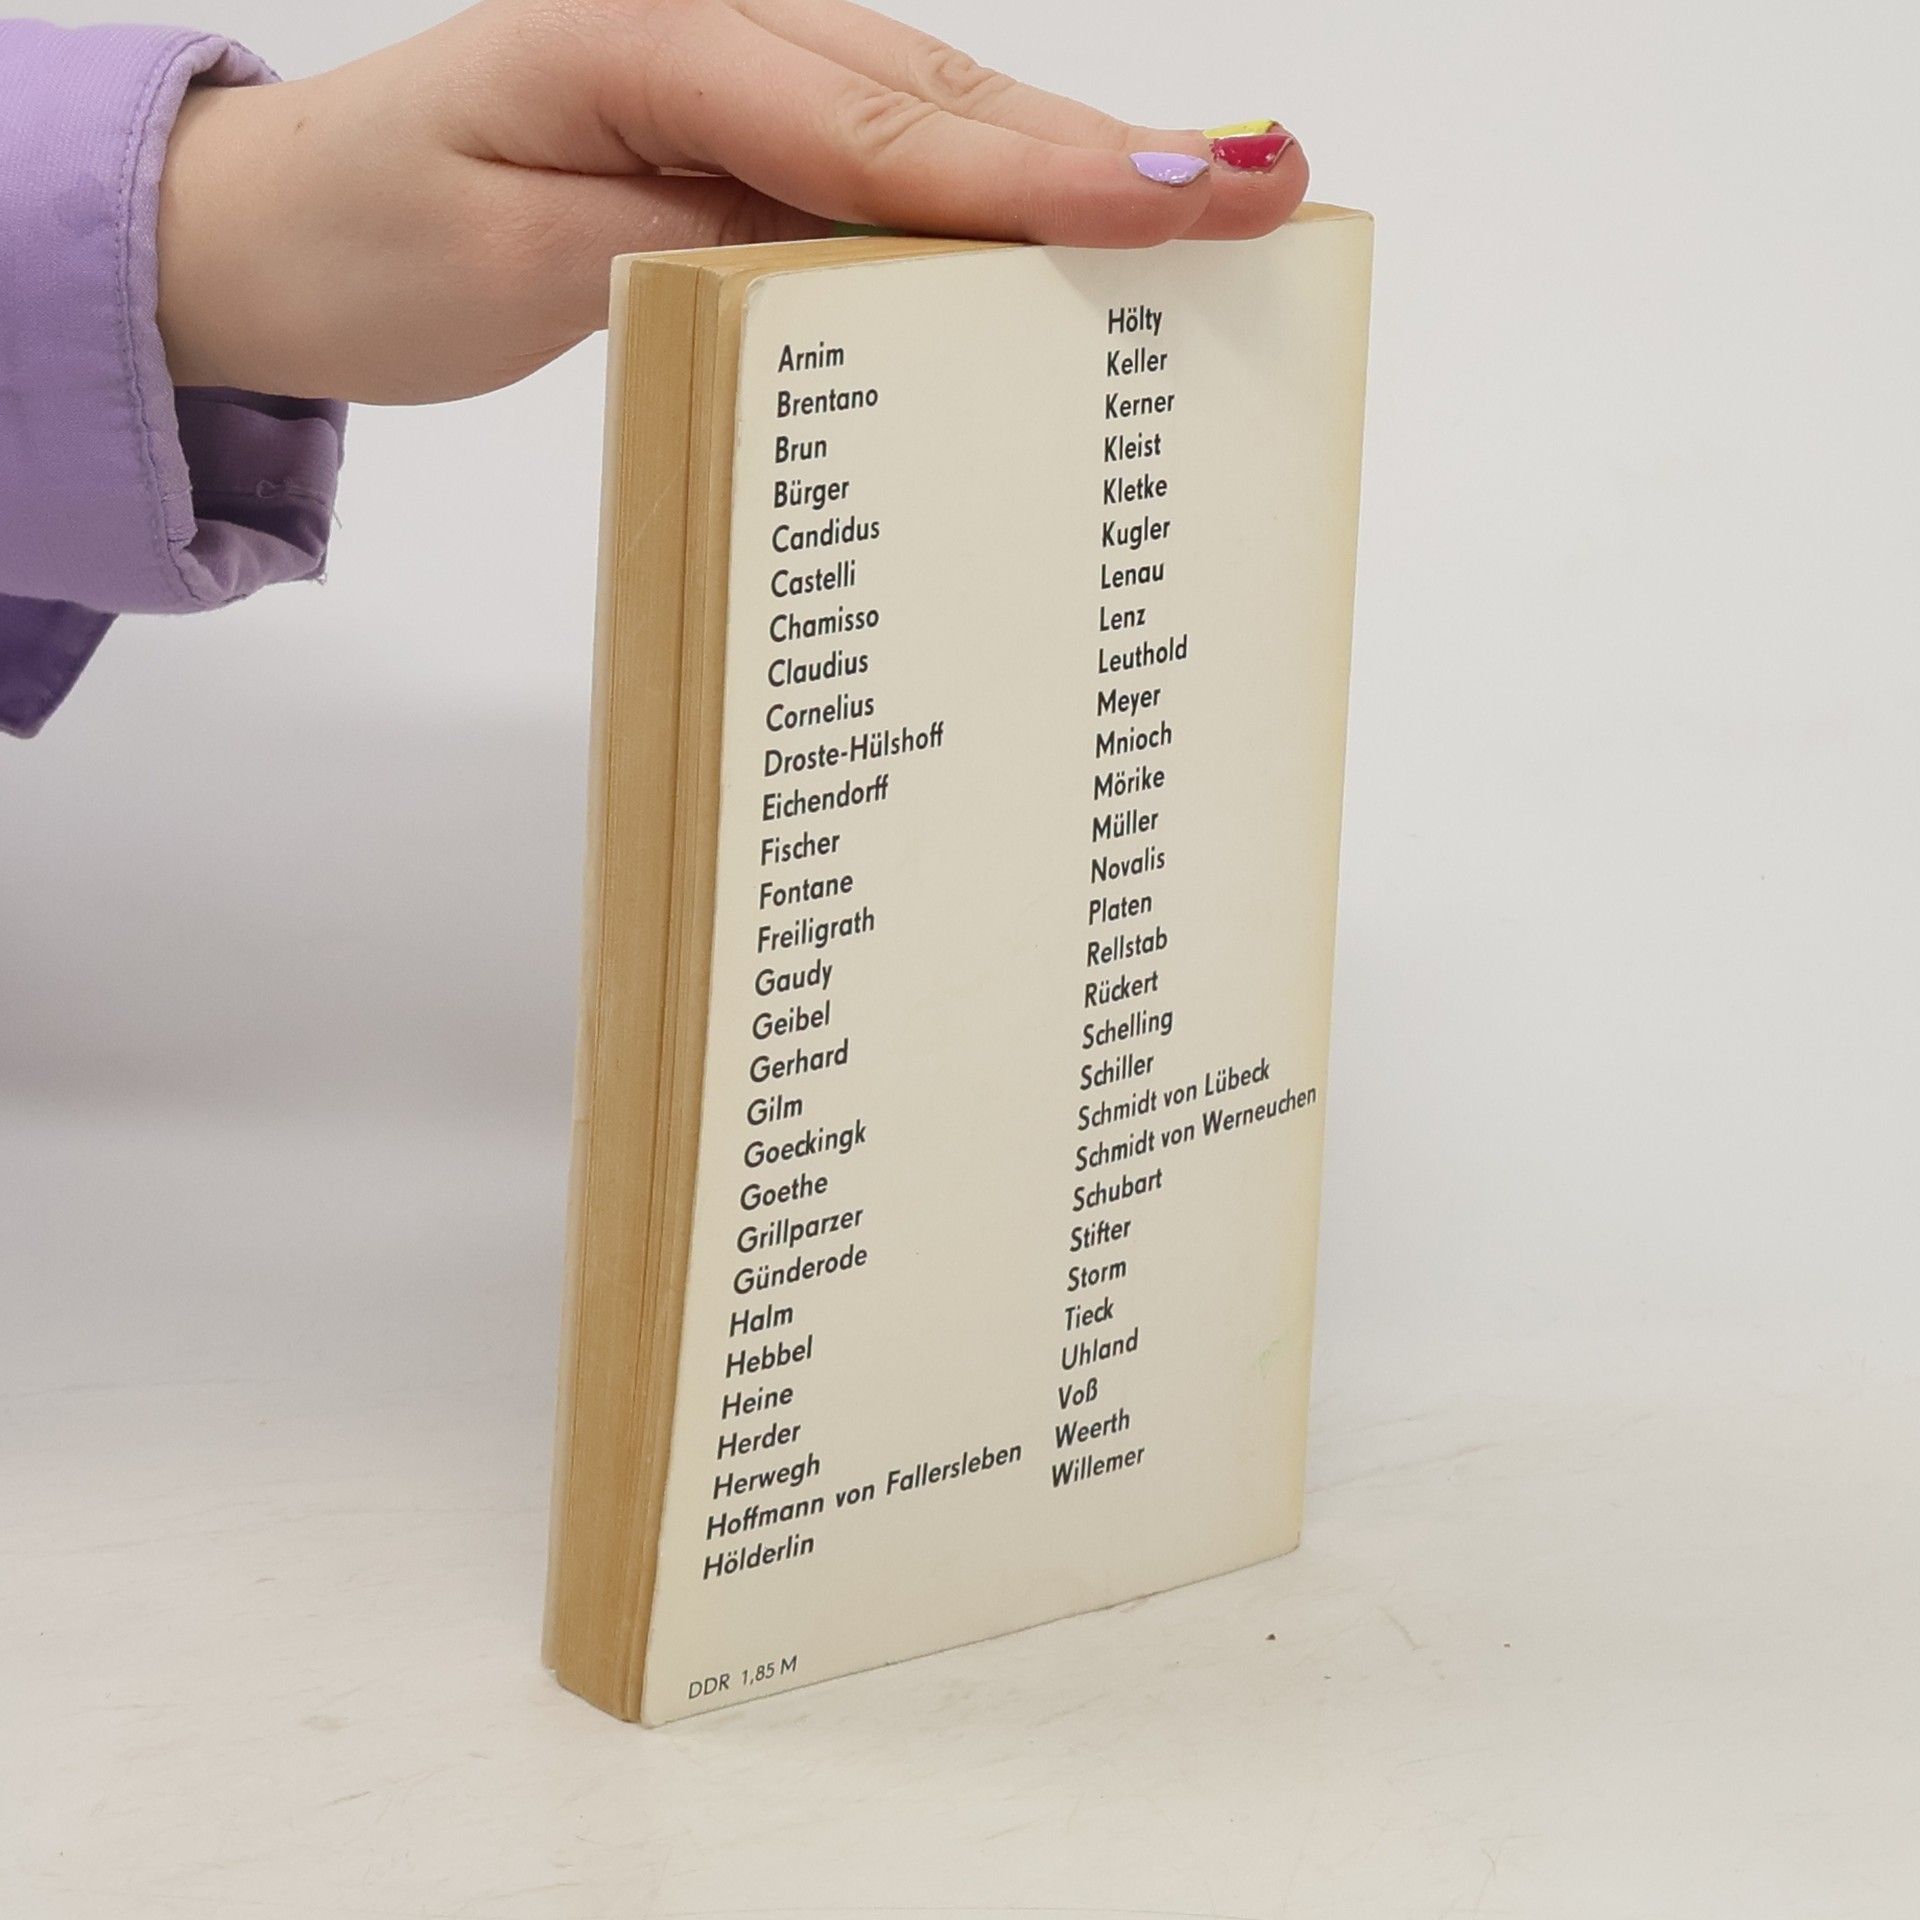 Arnim
Brentano
Brun
Bürger
Candidus
Castelli
Chamisso
Claudius
Cornelius
Droste-Hülshoff
Eichendorff
Fischer
Fontane
Freiligrath
Gaudy
Geibel
Gerhard
Gilm
Goeckingk
Goethe
Grillparzer
Günderode
Halm
Hebbel
Heine
Herder
Herwegh
Hoffmann von Fallersleben
Hölderlin
Hölty
Keller
Kerner
Kleist
Kletke
Kugler
Lenau
Lenz
Leuthold
Meyer
Mnioch
Mörike
Müller
Novalis
Platen
Rellstab
Rückert
Schelling
Schiller
Schmidt von Lübeck
Schmidt von Werneuchen
Schubart
Stifter
Storm
Tieck
Uhland
Voß
Weerth
Willemer
DDR 1,85 M